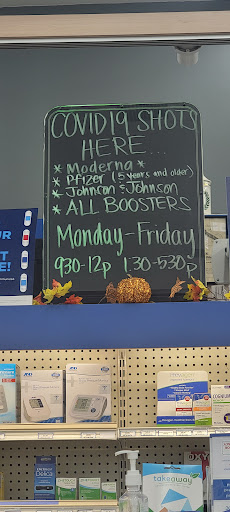 COVID19 SHOTS
HERE...
* Moderna *
* Pfizer (5 years and older)
* Johnson & Johnson
* ALL BOOSTERS
Monday-Friday
930-12p 1:30-530p
UR
T
E!
Delica
takeaway